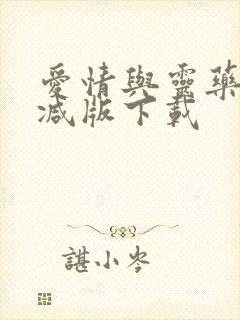 愛情與靈藥
减版下載
諶小岑